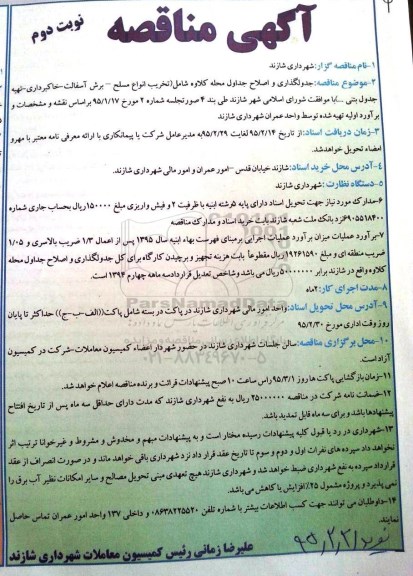 آگهی مناقصه
نوبت دوم
۱-نام مناقصه گزار: شهرداری شازند
۲-موضوع مناقصه: جدولگذاری و اصلاح جداول محله کلاوه شامل(تخریب انواع مسلح – برش آسفالت-خاکبرداری-تهیه
جدول بتنی ...)با موافقت شورای اسلامی شهر شازند طی بند ۴ صورتجلسه شماره ۲ مورخ ۹۵/۱/۱۷ براساس نقشه و مشخصات و
برآورد اولیه تهیه شده توسط واحد عمران شهرداری شازند
۳-زمان دریافت اسناد: از تاریخ ۹۵/۲/۱۴ لغایت ۹۵/۲/۲۹به مدیرعامل شرکت یا پیمانکاری با ارائه معرفی نامه معتبر با مهرو
امضاء تحویل خواهدشد.
۴-آدرس محل خرید اسناد: شازند خیابان قدس –امور عمران و امور مالی شهرداری شازند.
۵-دستگاه نظارت: شهرداری شازند
۶-مدارک مورد نیاز جهت تحویل اسناد دارای پایه ۵رشته ابنیه با ظرفیت ۲ و فیش واریزی مبلغ ۱۵۰۰۰۰ریال بحساب جاری شماره
نزد بانک ملت شعبه شازند بابت خرید اسناد و مدارک مناقصه
۷-برآورد عملیات میزان برآورد عملیات اجرایی برمبنای فهرست بهاء ابنیه سال ۱۳۹۵ پس از اعمال ۱/۳ ضریب بالاسری و ۱/۰۵
ضریب منطقه ای و مبلغ ۱۹۲۶۱۵۹۰ریال مقطوعاً بابت هزینه تجهیز و برچیدن کارگاه برای کل جدولگذاری و اصلاح جداول محله
کلاوه واقع در شازند برابر ریال می باشد وشاخص تعدیل قراردادسه ماهه چهارم ۱۳۹۴ است.
۸-مدت اجرای کار: ۲ماه
۹-آدرس محل تحویل اسناد: واحد امور مالی شهرداری شازند در پاکت در بسته شامل پاکت((الف-ب-ج)) حداکثر تا پایان
روز وقت اداری مورخ ۹۵/۲/۳۰
۱۰-محل برگزاری مناقصه: سالن جلسات شهرداری شازند در حضور شهردار اعضاء کمیسیون معاملات-شرکت در کمیسیون
آزاد است.
۱۱-زمان بازگشایی پاکت ها روز ۹۵/۳/۱ راس ساعت ۱۰ صبح پیشنهادات قرائت و برنده مناقصه اعلام خواهد شد.
۱۲-ضمانت نامه شرکت در مناقصه ۲۵۰۰۰۰۰۰ ریال به نفع شهرداری شازند که مدت دارای حداقل سه ماه پس از تاریخ افتتاح
پیشنهادها باشد و برای سه ماه قابل تمدید باشد.
۱۳-شهرداری در رد یا قبول کلیه پیشنهادات رسیده مختار است و به پیشنهادات مبهم و مخدوش و مشروط و غیرخوانا ترتیب اثر
نخواهد داد سپرده های نفرات اول و دوم و سوم تا تاریخ عقد قرار داد نزد شهرداری باقی خواهد ماند و در صورت انصراف از عقد
قرارداد سپرده به نفع شهرداری ضبط خواهد شد و شهرداری شازند هیچ تعهدی مبنی تحویل مصالح و سایر امکانات نظیر آب برق را
نمی پذیرد و پروژه مشمول ۲۵٪افزایش یا کاهش می باشد.
۱۴-داوطلبان می توانند جهت کسب اطلاعات بیشتر با شماره تلفن ۰۸۶۳۸۲۲۵۵۲۰ و داخلی ۱۳۷ واحد امور عمران تماس حاصل
نمایند.
علیرضا زمانی رئیس کمیسیون معاملات شهرداری شازند
ParsNamadData
۰۲۱-۸۸۳۴۹۶۷۰-۵